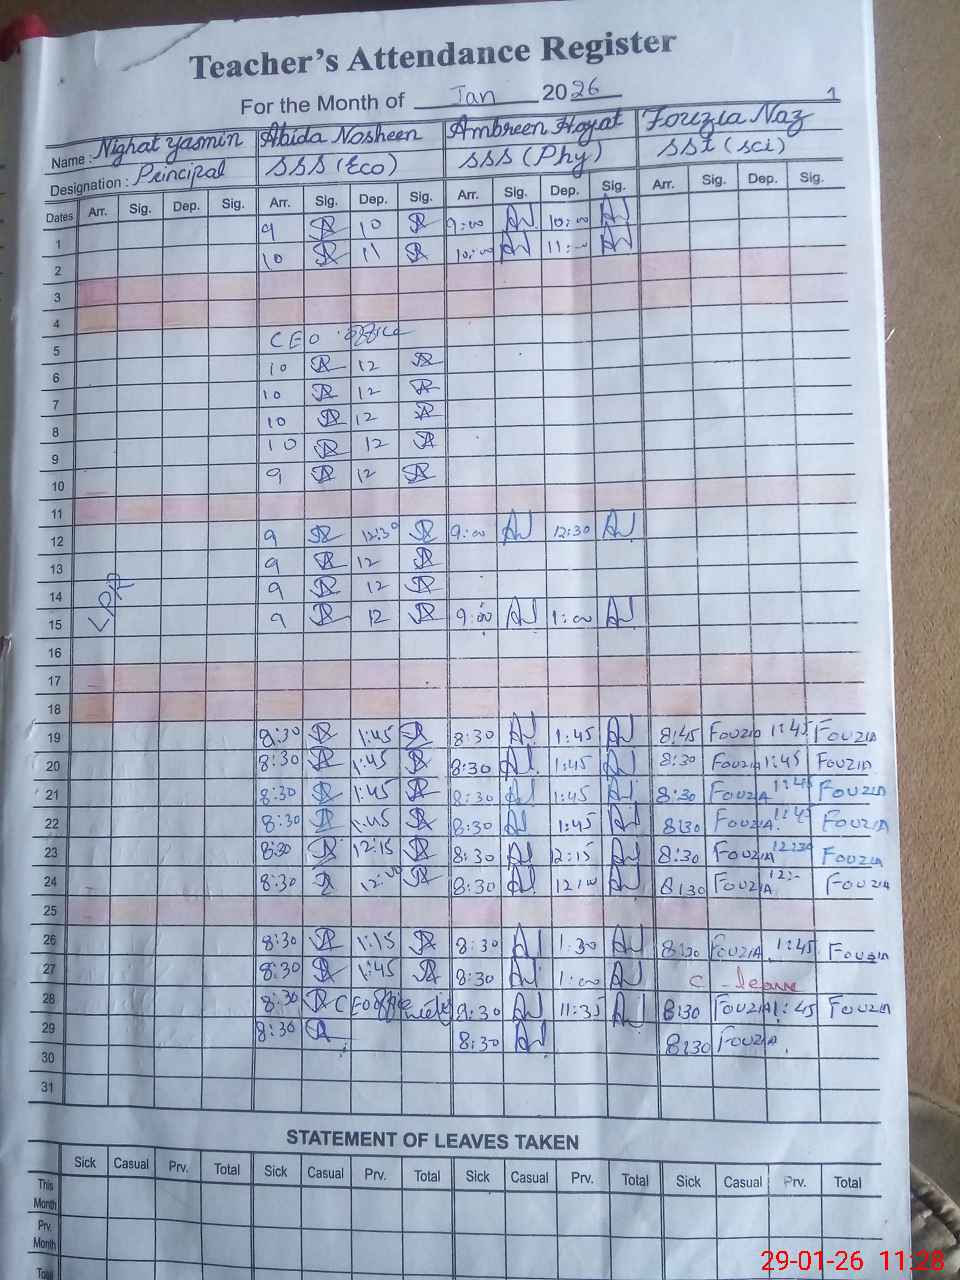 Teacher's Attendance Register
For the Month of Jan 2026
1
Name : Nighat Yasmin Abida Nosheen Ambreen Hayat Fouzia Naz
Designation : Principal SSS (Eco) SSS (Phy) SST (Sci)
Dates Arr. Sig. Dep. Sig. Arr. Sig. Dep. Sig. Arr. Sig. Dep. Sig. Arr. Sig. Dep. Sig.
1 9 10 9:00 10:00
2 10 11 10:00 11:00
3
4
5 CEO office
6 10 12
7 10 12
8 10 12
9 10 12
10 9 12
11
12 9 12:30 9:00 12:30
13 9 12
14 9 12
15 LPR 9 12 9:00 1:00
16
17
18
19 8:30 1:45 8:30 1:45 8:45 Fouzia 1:45 Fouzia
20 8:30 1:45 8:30 1:45 8:30 Fouzia 1:45 Fouzia
21 8:30 1:45 8:30 1:45 8:30 Fouzia 1:45 Fouzia
22 8:30 1:45 8:30 1:45 8:30 Fouzia 1:45 Fouzia
23 8:30 12:15 8:30 12:15 8:30 Fouzia 12:30 Fouzia
24 8:30 12:00 8:30 12:00 8:30 Fouzia 12:- Fouzia
25
26 8:30 1:15 8:30 1:30 8:30 Fouzia 1:45 Fouzia
27 8:30 1:45 8:30 1:00 C - leave
28 8:30 CEO office 8:30 11:35 8:30 Fouzia 1:45 Fouzia
29 8:30 8:30 8:30 Fouzia
30
31
STATEMENT OF LEAVES TAKEN
Sick Casual Prv. Total Sick Casual Prv. Total Sick Casual Prv. Total Sick Casual Prv. Total
This Month
Prv. Month
Total
29-01-26 11:28